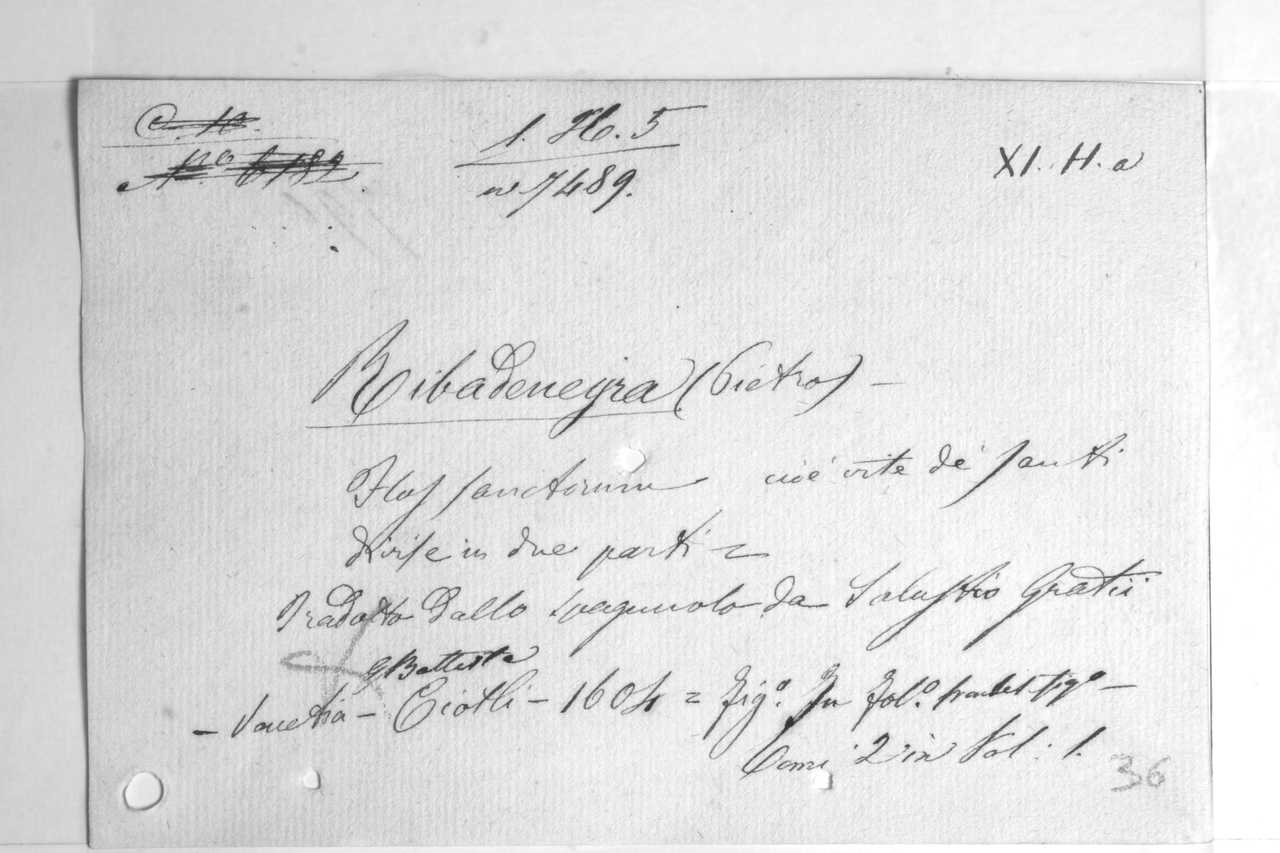 C. 10.
1. H. 5
XI. H. a
N.º 6189
n 7489.
Ribadeneyra (Pietro) -
Flos sanctorum cioè vite de' santi
divise in due parti =
Tradotto dallo spagnuolo da Salustio Gratii
G Battista
- Venetia - Ciotti - 1604 = fig.º In fol.º fig.º -
Tomi 2 in Vol: 1.
36